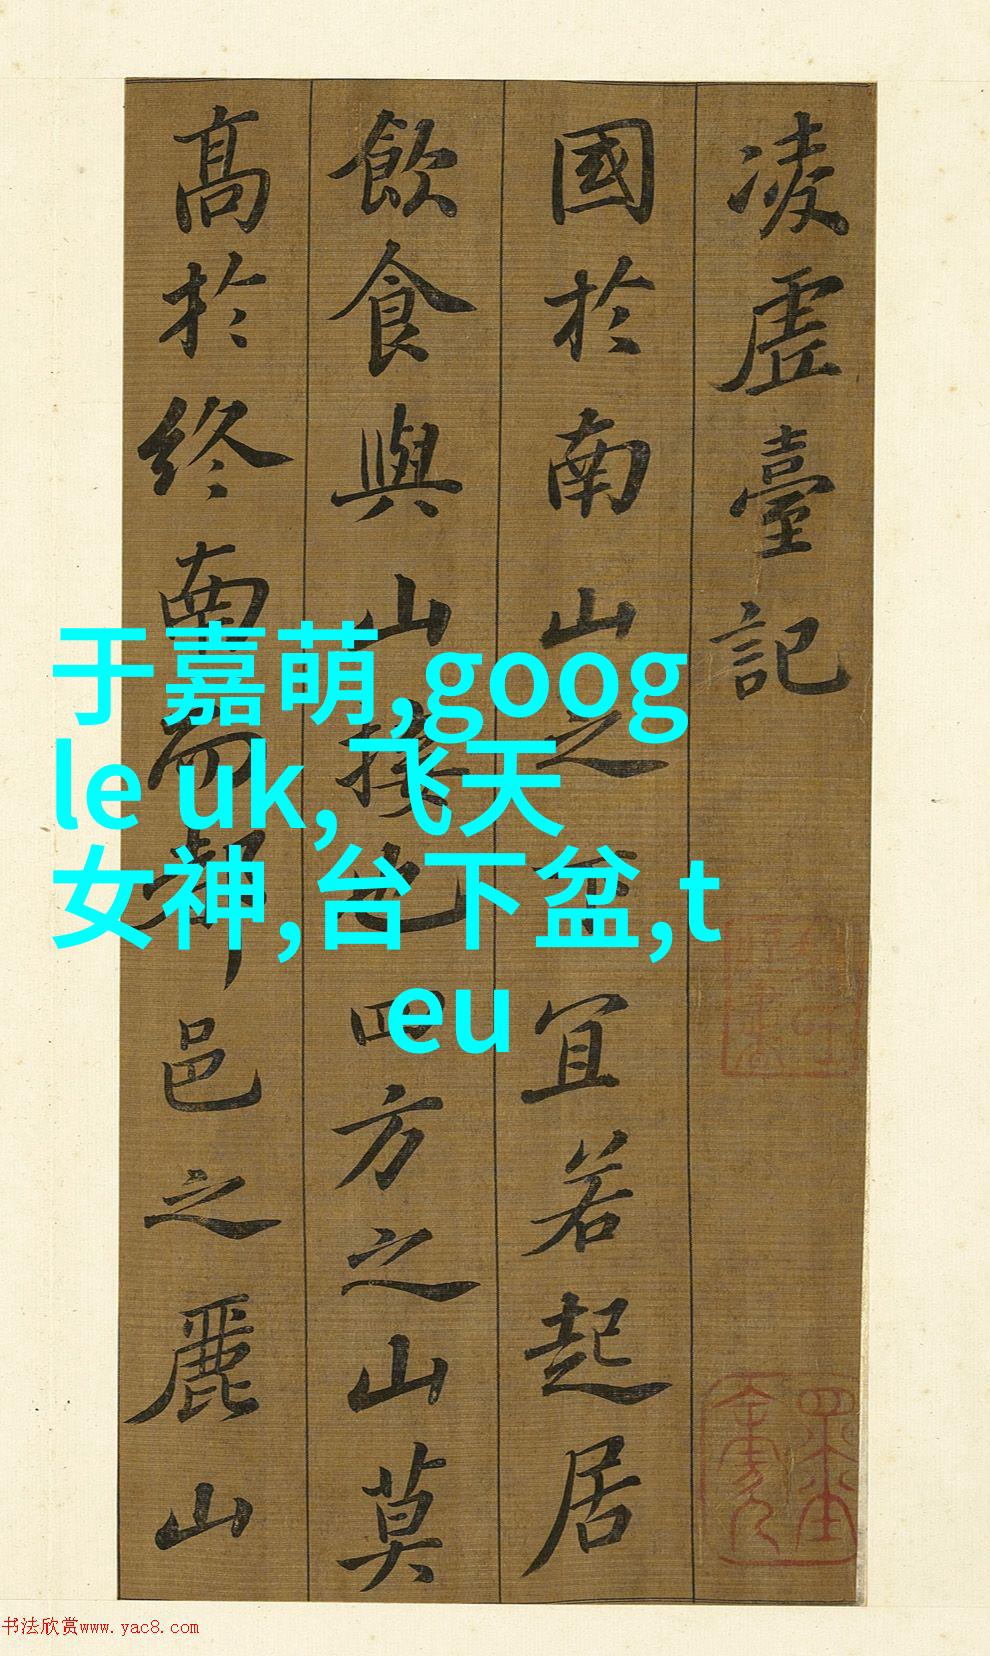 凌虛臺記
國於南山之下宜若起居
飲食與山接也四方之山莫
高於終南而都邑之麗山
于嘉萌,goog
le uk,飞天
女神,台下盆,t
eu
书法欣赏www.yac8.com